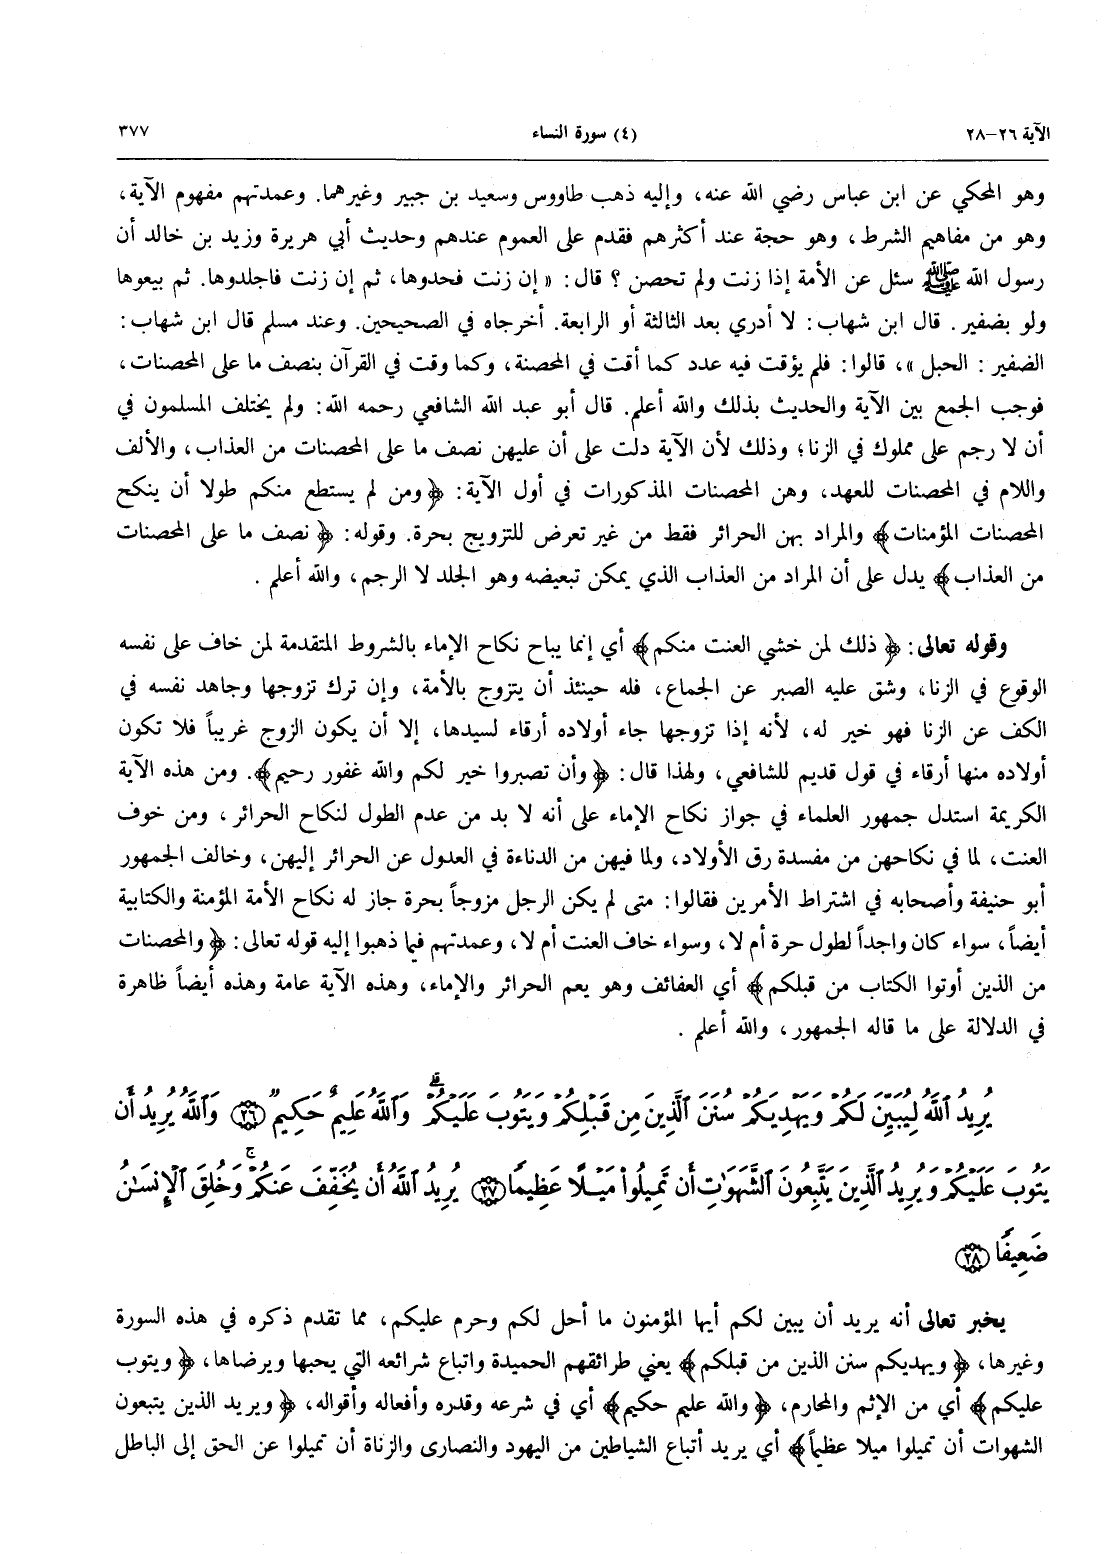 الآية ٢٦-٢٨ (٤) سورة النساء ٣٧٧
وهو المحكي عن ابن عباس رضي الله عنه، وإليه ذهب طاووس وسعيد بن جبير وغيرهما. وعمدتهم مفهوم الآية،
وهو من مفاهيم الشرط، وهو حجة عند أكثرهم فقدم على العموم عندهم وحديث أبي هريرة وزيد بن خالد أن
رسول الله ﷺ سئل عن الأمة إذا زنت ولم تحصن ؟ قال: « إن زنت فحدوها، ثم إن زنت فاجلدوها. ثم بيعوها
ولو بضفير. قال ابن شهاب: لا أدري بعد الثالثة أو الرابعة. أخرجاه في الصحيحين. وعند مسلم قال ابن شهاب:
الضفير : الحبل »، قالوا: فلم يؤقت فيه عدد كما أقت في المحصنة، وكما وقت في القرآن بنصف ما على المحصنات،
فوجب الجمع بين الآية والحديث بذلك والله أعلم. قال أبو عبد الله الشافعي رحمه الله: ولم يختلف المسلمون في
أن لا رجم على مملوك في الزنا؛ وذلك لأن الآية دلت على أن عليهن نصف ما على المحصنات من العذاب، والألف
واللام في المحصنات للعهد، وهن المحصنات المذكورات في أول الآية: ﴿ومن لم يستطع منكم طولا أن ينكح
المحصنات المؤمنات﴾ والمراد بهن الحرائر فقط من غير تعرض للتزويج بحرة. وقوله: ﴿ نصف ما على المحصنات
من العذاب﴾ يدل على أن المراد من العذاب الذي يمكن تبعيضه وهو الجلد لا الرجم، والله أعلم .
وقوله تعالى: ﴿ ذلك لمن خشي العنت منكم﴾ أي إنما يباح نكاح الإماء بالشروط المتقدمة لمن خاف على نفسه
الوقوع في الزنا، وشق عليه الصبر عن الجماع، فله حينئذ أن يتزوج بالأمة، وإن ترك تزوجها وجاهد نفسه في
الكف عن الزنا فهو خير له، لأنه إذا تزوجها جاء أولاده أرقاء لسيدها، إلا أن يكون الزوج غريباً فلا تكون
أولاده منها أرقاء في قول قديم للشافعي، ولهذا قال: ﴿وأن تصبروا خير لكم والله غفور رحيم﴾. ومن هذه الآية
الكريمة استدل جمهور العلماء في جواز نكاح الإماء على أنه لا بد من عدم الطول لنكاح الحرائر، ومن خوف
العنت، لما في نكاحهن من مفسدة رق الأولاد، ولما فيهن من الدناءة في العدول عن الحرائر إليهن، وخالف الجمهور
أبو حنيفة وأصحابه في اشتراط الأمرين فقالوا: متى لم يكن الرجل مزوجاً بحرة جاز له نكاح الأمة المؤمنة والكتابية
أيضاً، سواء كان واجداً لطول حرة أم لا، وسواء خاف العنت أم لا، وعمدتهم فيما ذهبوا إليه قوله تعالى: ﴿ والمحصنات
من الذين أوتوا الكتاب من قبلكم﴾ أي العفائف وهو يعم الحرائر والإماء، وهذه الآية عامة وهذه أيضاً ظاهرة
في الدلالة على ما قاله الجمهور، والله أعلم .
يُرِيدُ ٱللَّهُ لِيُبَيِّنَ لَكُمْ وَيَهْدِيَكُمْ سُنَنَ ٱلَّذِينَ مِن قَبْلِكُمْ وَيَتُوبَ عَلَيْكُمْ ۗ وَٱللَّهُ عَلِيمٌ حَكِيمٌ ۝٢٦ وَٱللَّهُ يُرِيدُ أَن
يَتُوبَ عَلَيْكُمْ وَيُرِيدُ ٱلَّذِينَ يَتَّبِعُونَ ٱلشَّهَوَٰتِ أَن تَمِيلُوا۟ مَيْلًا عَظِيمًا ۝٢٧ يُرِيدُ ٱللَّهُ أَن يُخَفِّفَ عَنكُمْ ۚ وَخُلِقَ ٱلْإِنسَٰنُ
ضَعِيفًا ۝٢٨
يخبر تعالى أنه يريد أن يبين لكم أيها المؤمنون ما أحل لكم وحرم عليكم، مما تقدم ذكره في هذه السورة
وغيرها، ﴿ ويهديكم سنن الذين من قبلكم﴾ يعني طرائقهم الحميدة واتباع شرائعه التي يحبها ويرضاها، ﴿ ويتوب
عليكم﴾ أي من الإثم والمحارم، ﴿والله عليم حكيم﴾ أي في شرعه وقدره وأفعاله وأقواله، ﴿ ويريد الذين يتبعون
الشهوات أن تميلوا ميلا عظيماً﴾ أي يريد أتباع الشياطين من اليهود والنصارى والزناة أن تميلوا عن الحق إلى الباطل